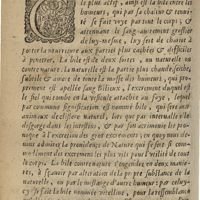 le plus actif, ainsi est la bile entre les
humeurs, qui par sa chaleur & tenui-
té se fait voye par tout le corps, &
attenuant le sang autrement grossier
de luy-mesme, luy sert de chariot à
porter la nourriture aux parties plus cachées & difficiles
à penetrer. La bile est de deux sortes, ou naturelle ou
contre nature. La naturelle est la partie plus chaude, seiche,
subtile & amere de toute la masse des humeurs, qui pro-
prement est appellée sang bilieux, l'excrement duquel est
le fiel qui contenu en la vessicule attachée au foye,
par commune signification est nommé bile,
deviennent ainsi bilieux, lors que par intervalle
desgorge dans les intestins, & par son acrimonie les pro-
uoque à l'excretion des gros excremens: en quoy nous de-
uons admirer la prouidence de Nature qui se sert si com-
modement d'un excrement pour l'utilité de tout le
corps. La bile contre nature s'engendre en deux manie-
res, à sçauoir par alteration de la propre substance de la
naturelle, ou par le meslange d'autre humeur: par celuy-
cy se fait la bile nommée vitelline, pour la ressemblance